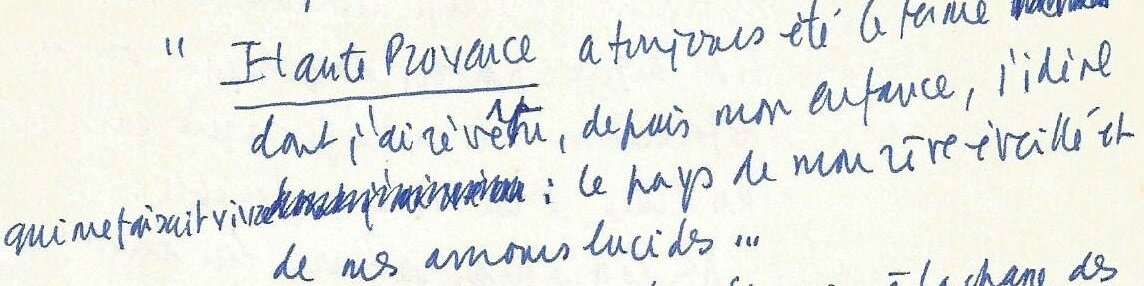 " Haute Provence a toujours été le terme
dont j'ai revêtu, depuis mon enfance, l'idéal
qui me faisait vivre : le pays de mon rêve éveillé et
de mes amours lucides ...
à la des